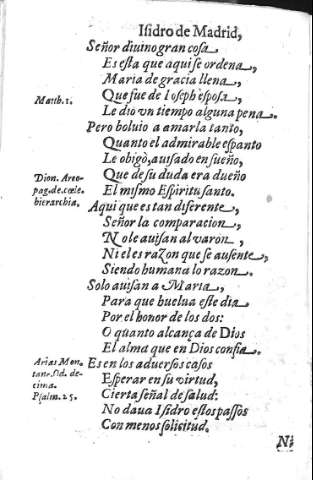 Isidro de Madrid,
Señor diuino gran cosa
Es esta que aqui se ordena,
Maria de gracia llena,
Que fue de Ioseph esposa,
Matth. 1.
Le dio vn tiempo alguna pena.
Pero boluio a amarla tanto,
Quanto el admirable espanto
Le obigò, auisado en sueño,
Que de su duda era dueño
Dion. Areo-
pag. de cœle.
hierarchia.
El mismo Espiritu santo.
Aqui que es tan diferente,
Señor la comparacion,
No le auisan al varon,
Ni el es razon que se ausente,
Siendo humana lo razon.
Solo auisan a Maria,
Para que buelua este dia
Por el honor de los dos:
O quanto alcança de Dios
El alma que en Dios confia.
Arias Mon-
tan. sid. de-
cima.
Psalm. 25.
Es en los aduersos casos
Esperar en su virtud,
Cierta señal de salud:
No daua Isidro estos passos
Con menos solicitud.
Ni